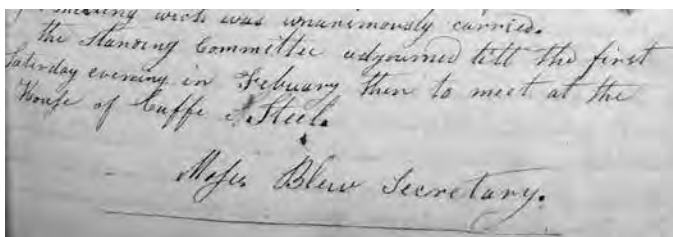 meeting wich was unanimously carried.
the Standing Committee adjourned till the first
Saturday evening in Febuary then to meet at the
House of Cuffe Steel.
Moses Blew Secretary.